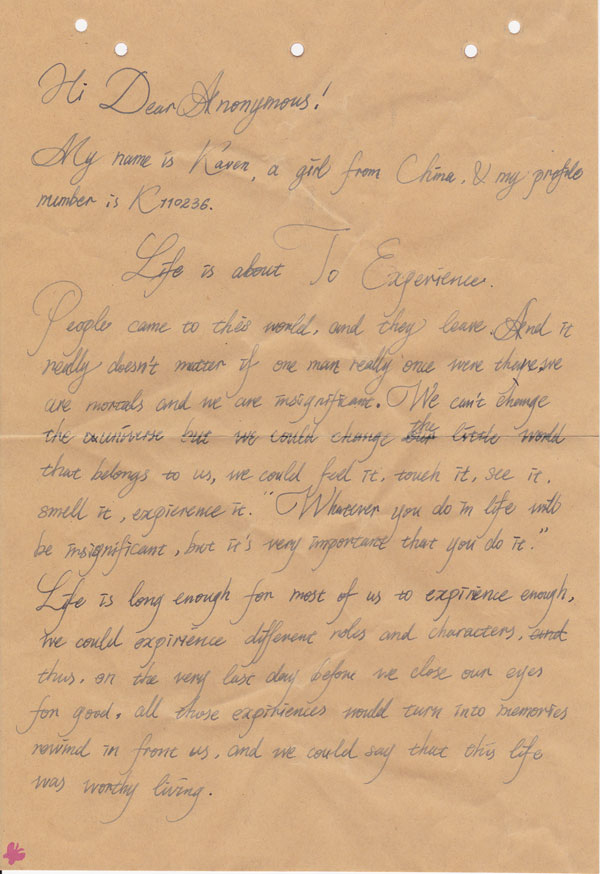 Hi Dear Anonymous!
My name is Karen, a girl from China. & my profile
number is K110236.
Life is about To Experience.
People came to this world, and they leave. And it
really doesn't matter if one man really once were there, we
are mortals and we are insignificant. We can't change
the universe but we could change the little world
that belongs to us, we could feel it, touch it, see it,
smell it, expierence it. "Whatever you do in life will
be insignificant, but it's very important that you do it."
Life is long enough for most of us to expirience enough,
we could expirience different roles and characters, and
thus, on the very last day before we close our eyes
for good, all those expiriences would turn into memories
rewind in front us, and we could say that this life
was worthy living.